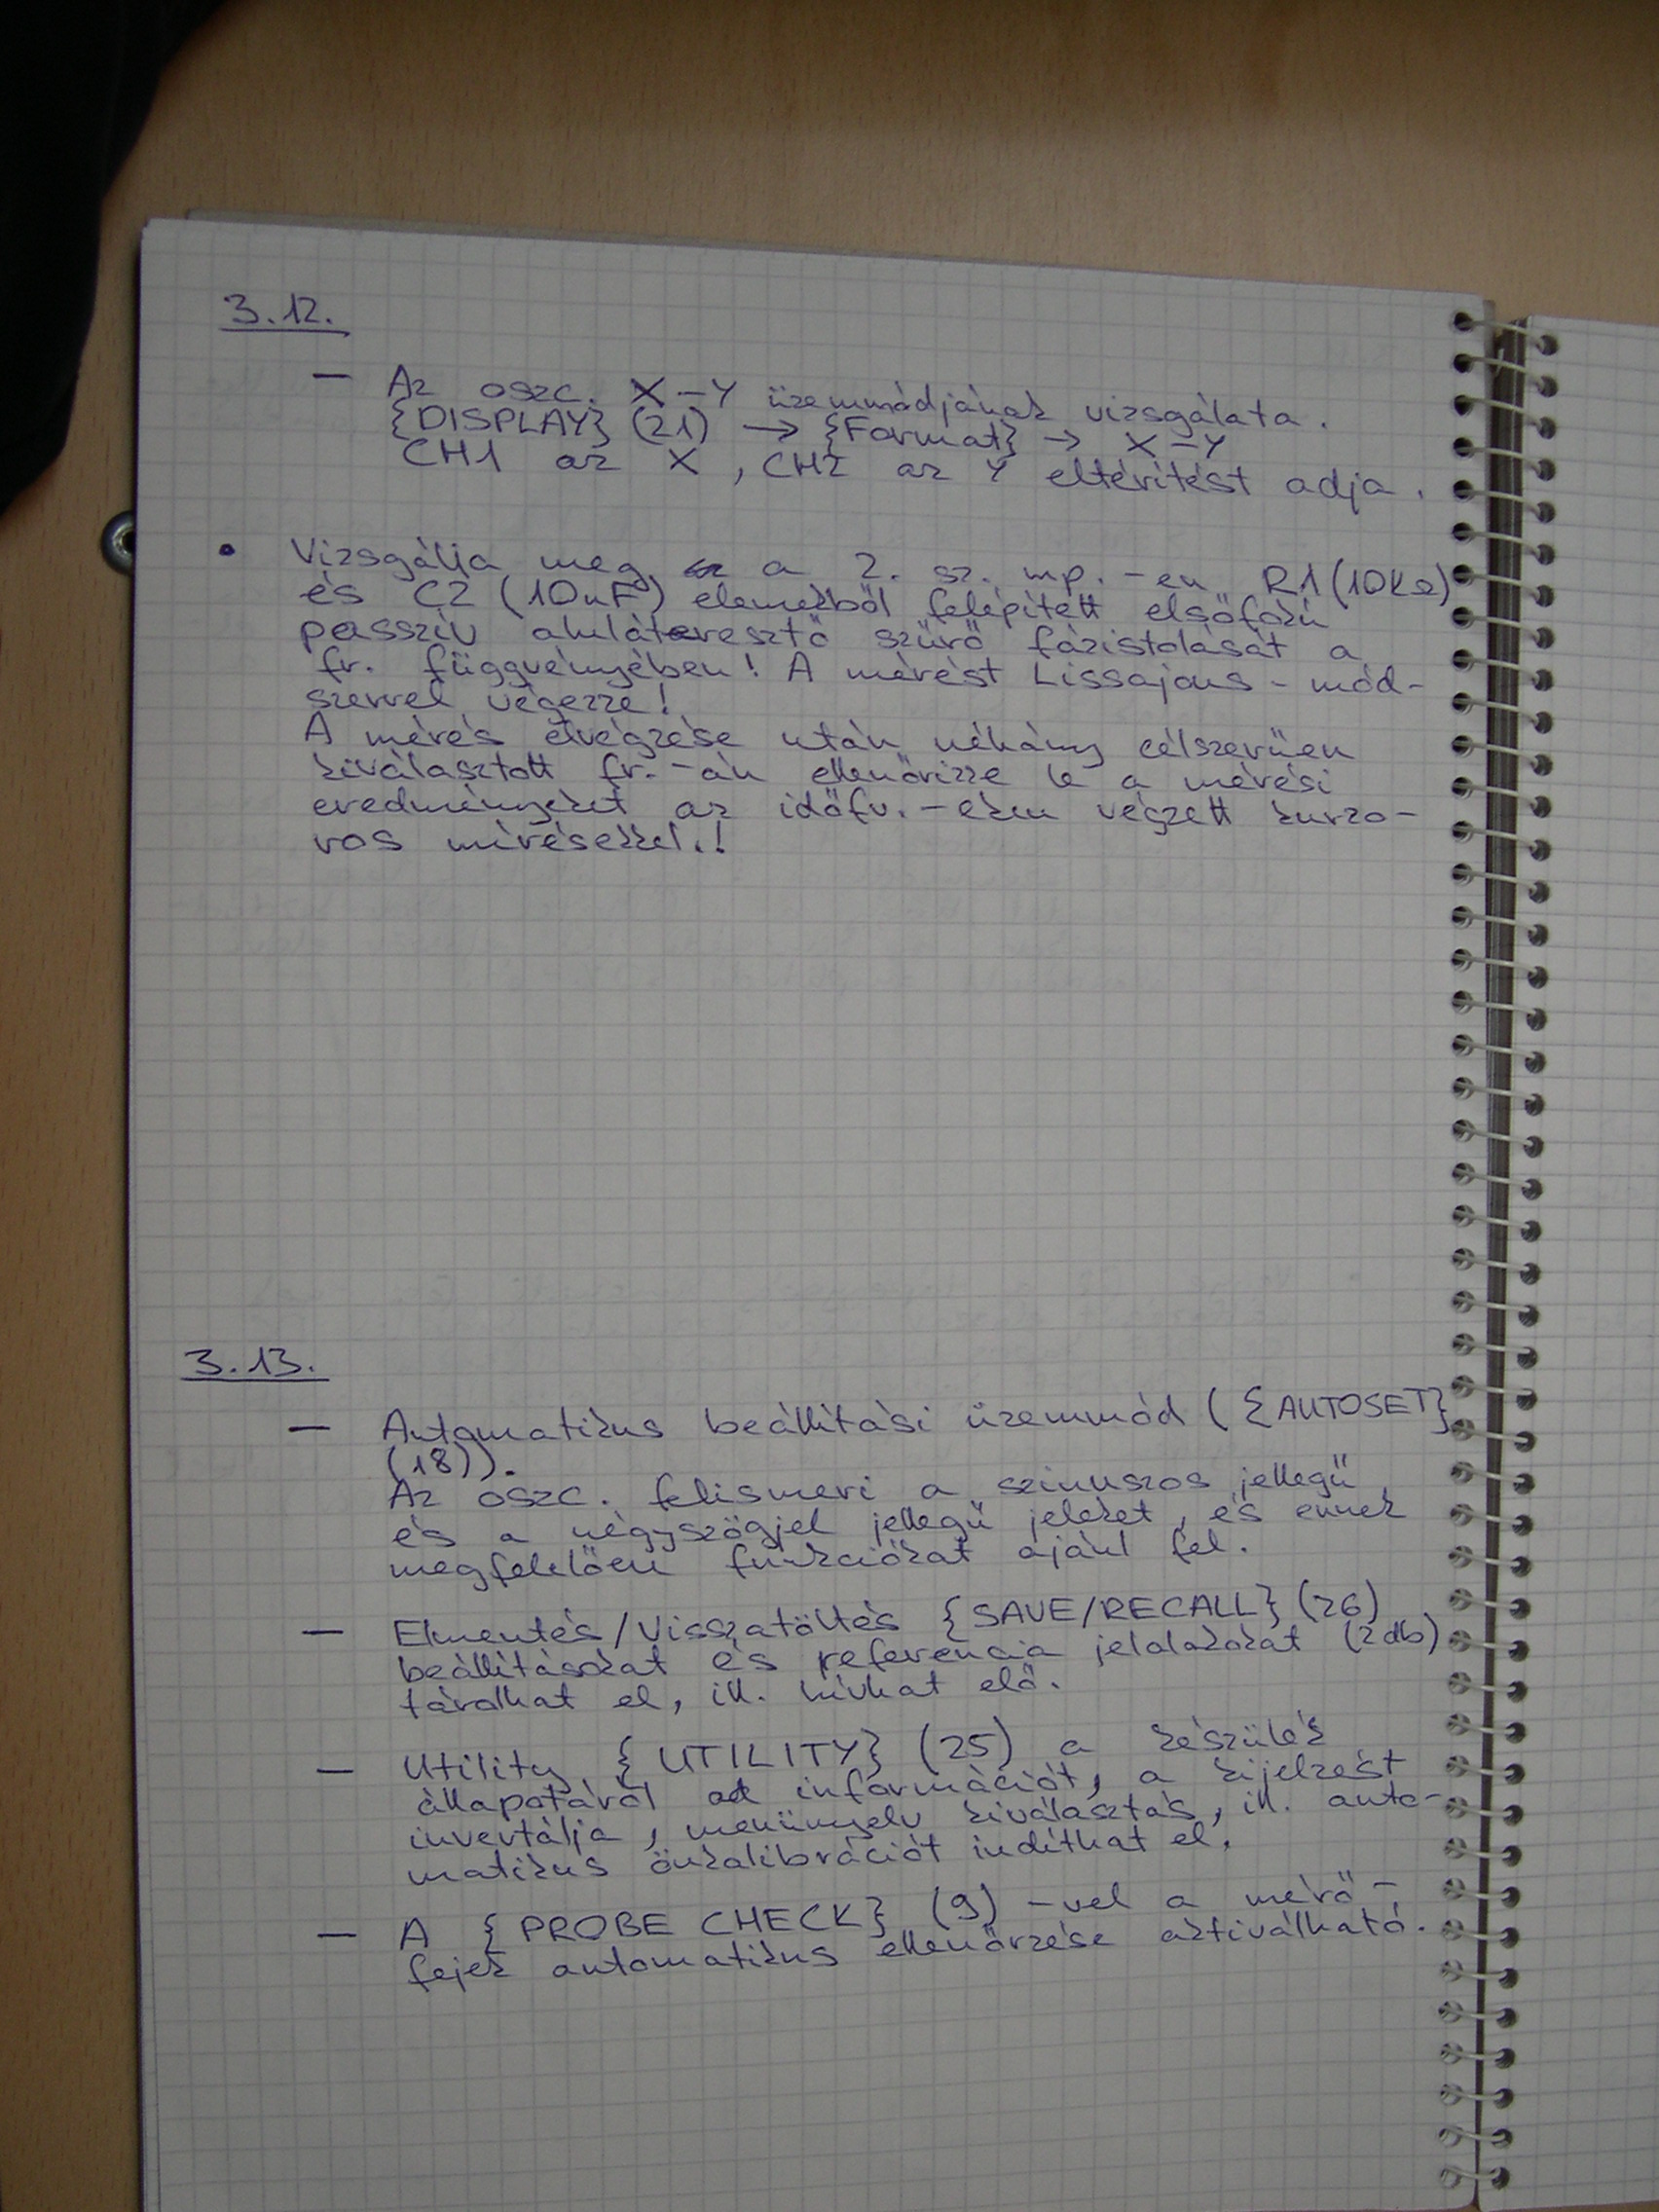 3.12.
— Az oszc. X-Y üzemmódjának vizsgálata.
{DISPLAY} (21) → {Format} → X-Y
CH1 az X, CH2 az Y eltérítést adja.
• Vizsgálja meg a 2. sz. mp.-en R1 (10kΩ)
és C2 (10nF) elemekből felépített elsőfokú
passzív aluláteresztő szűrő fázistolását a
fr. függvényében! A mérést Lissajous-mód-
szerrel végezze!
A mérés elvégzése után néhány célszerűen
kiválasztott fr.-án ellenőrizze le a mérési
eredményeket az időfv.-eken végzett kurzo-
ros mérésekkel.!
3.13.
— Automatikus beállítási üzemmód ({AUTOSET}
(18)).
Az oszc. felismeri a szinuszos jellegű
és a négyszögjel jellegű jeleket, és ennek
megfelelően funkciókat ajánl fel.
— Elmentés/Visszatöltés {SAVE/RECALL} (26)
beállításokat és referencia jelalakokat (2db)
tárolhat el, ill. hívhat elő.
— Utility {UTILITY} (25) a készülék
állapotáról ad információt, a kijelzést
invertálja, menünyelv kiválasztás, ill. auto-
matikus önkalibrációt indíthat el.
— A {PROBE CHECK} (9) -vel a mérő-
fejek automatikus ellenőrzése aktiválható.